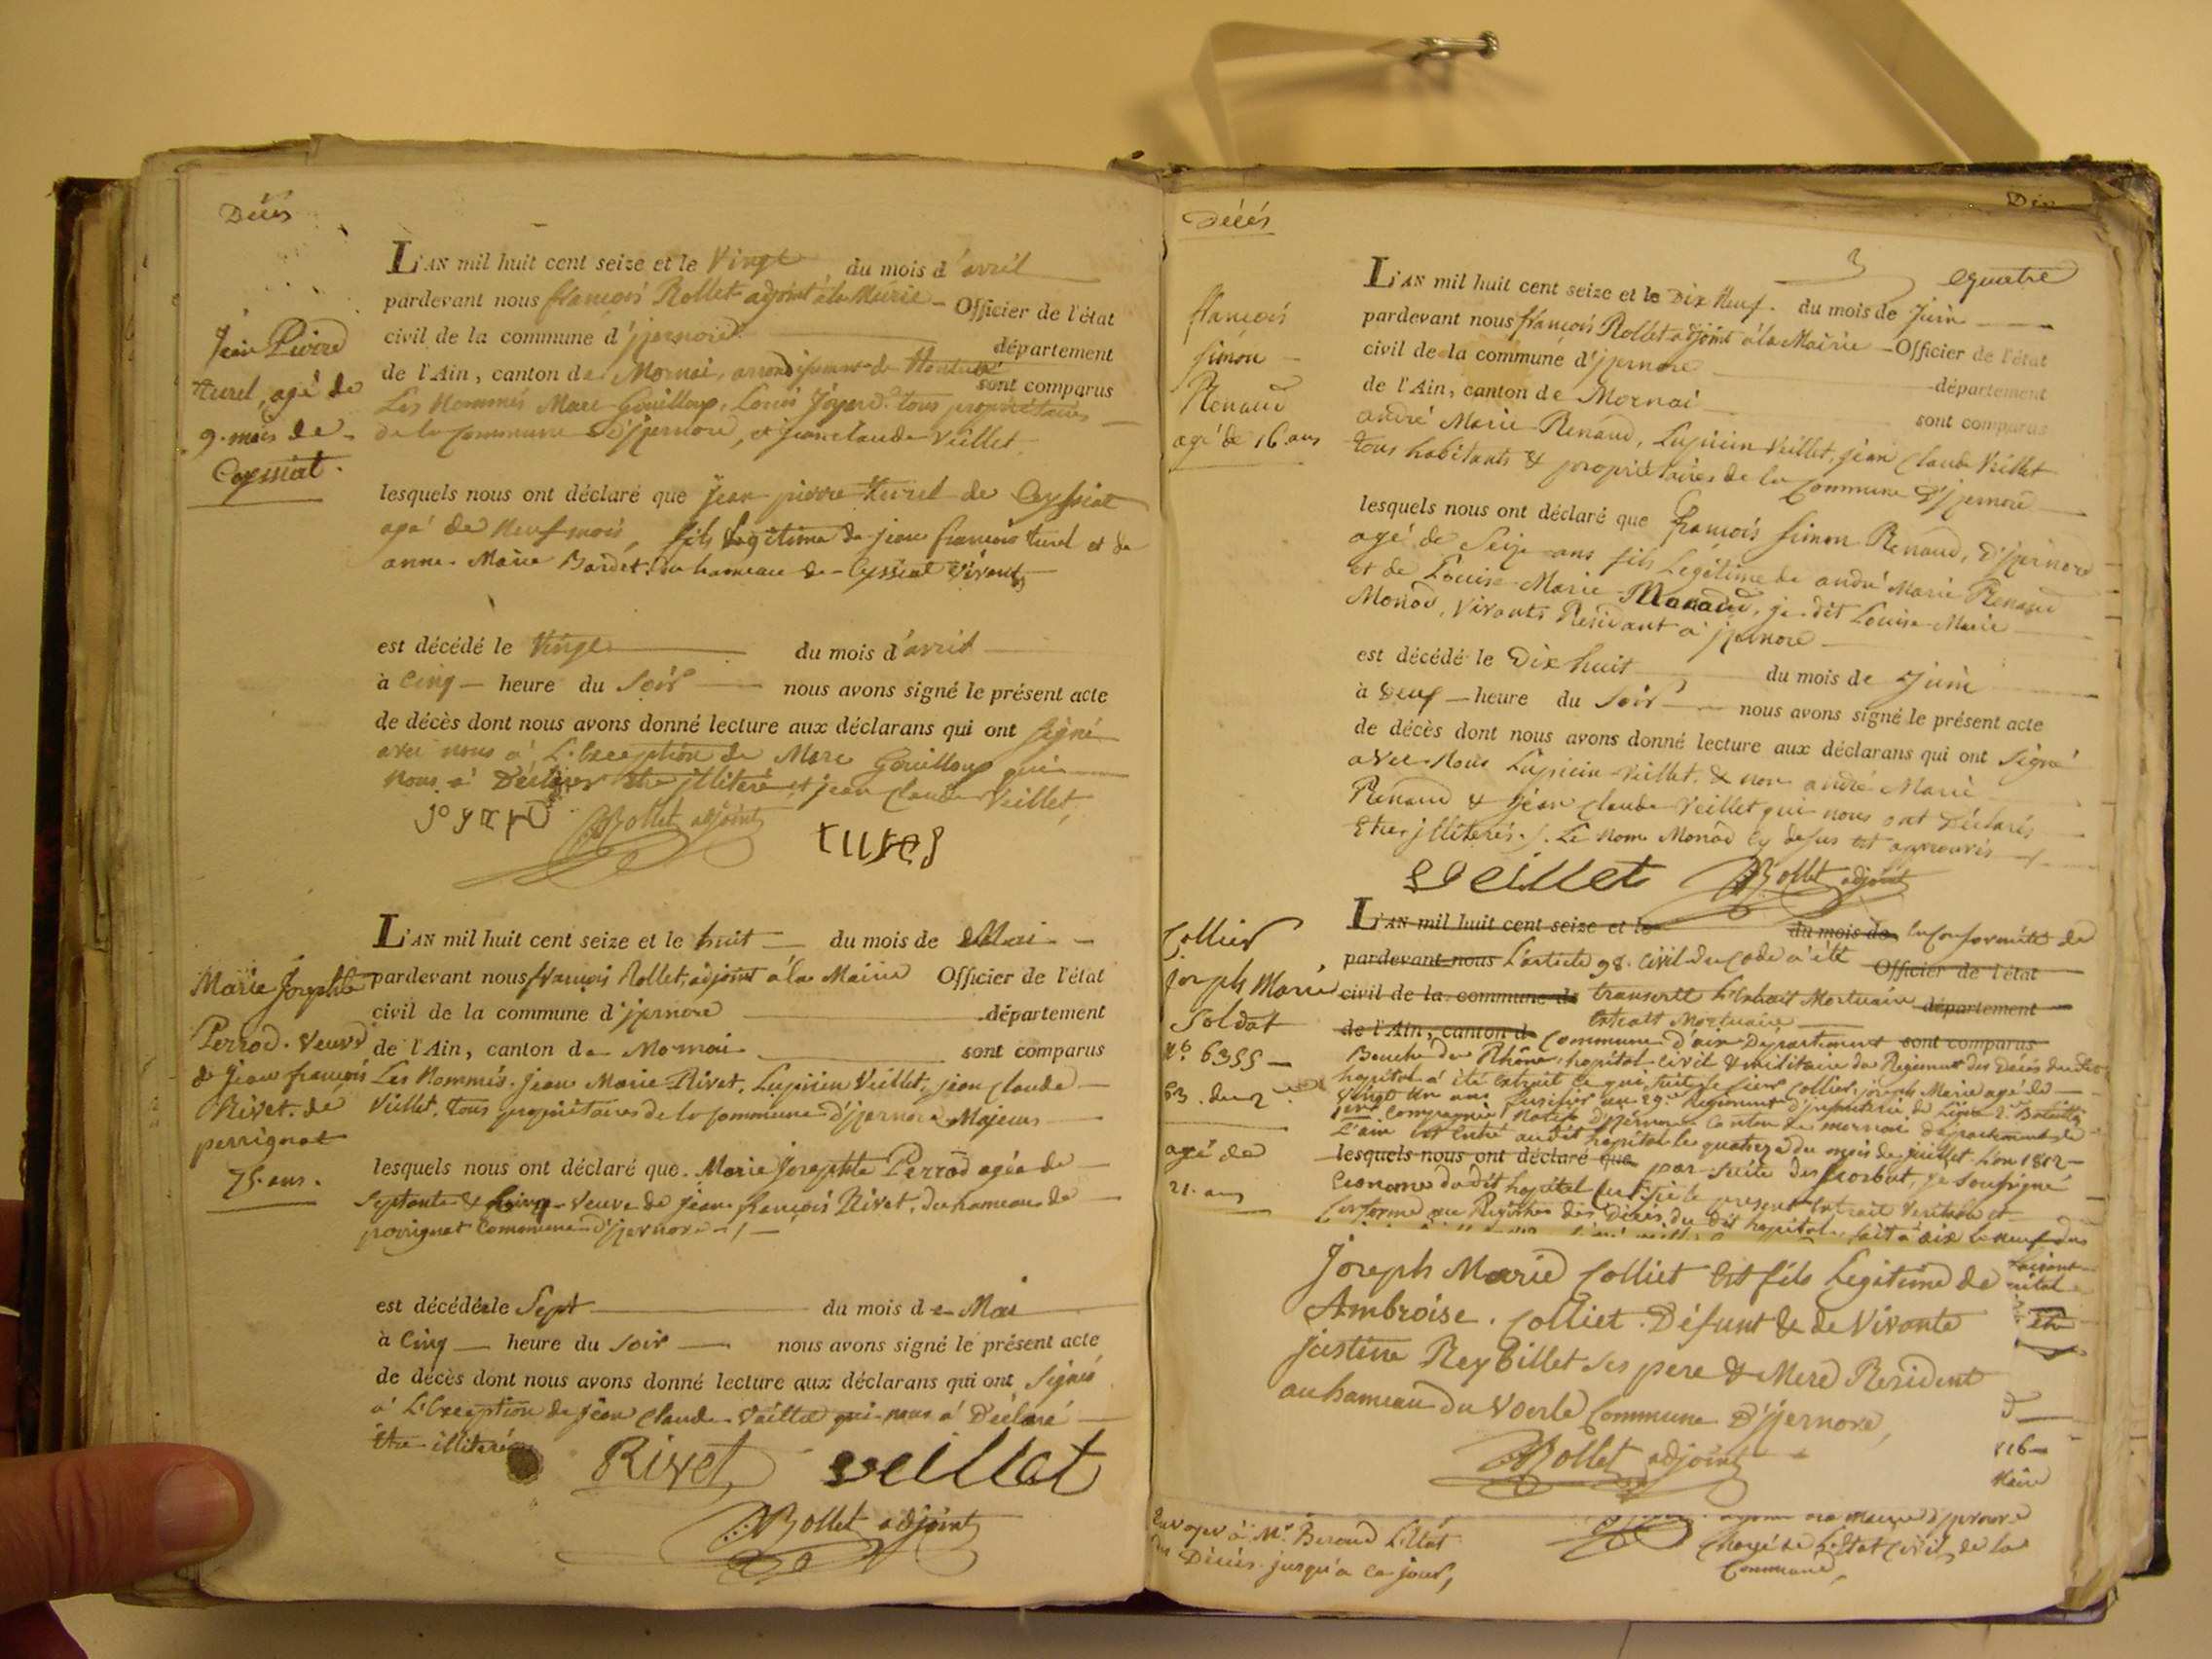 Décès
Jean Pierre
turel, agé de
9. mois de
Ceyssiat.
L'AN mil huit cent seize et le Vingt du mois d'avril
pardevant nous françois Rollet adjoint à la Mairie Officier de l'état
civil de la commune d'jzernore département
de l'Ain, canton de Mornai, arrondissement de Nantua sont comparus
Les Nommés Marc Gouilloux, Louis Joyard tous propriétaires
de la Commune d'jzernore, et jean claude Veillet
lesquels nous ont déclaré que Jean pierre turel de Ceyssiat
agé de Neuf mois, fils Legitime de jean françois turel et de
anne Marie Bardet, du hameau de Ceyssiat Vivants
est décédé le Vingt du mois d'avril
à Cinq heure du Soir nous avons signé le présent acte
de décès dont nous avons donné lecture aux déclarans qui ont signé
avec nous a L'Exception de Marc Gouilloux qui
nous a Déclarer être jlliteré et jean claude Veillet,
joyard Rollet adjoint turel
Marie Josephte
Perrod. Veuve
de Jean françois
Rivet. de
perrignat
75. ans.
L'AN mil huit cent seize et le huit du mois de Mai
pardevant nous françois Rollet, adjoint à la Mairie Officier de l'état
civil de la commune d'jzernore département
de l'Ain, canton de Mornai sont comparus
Les Nommés. Jean Marie Rivet, Lupicin Veillet, jean claude
Veillet, tous propriétaires de la Commune d'jzernore Majeurs
lesquels nous ont déclaré que Marie Josephte Perrod agée de
Septante & Cinq Veuve de jean françois Rivet, du hameau de
perrignat Commune d'jzernore
est décédée le Sept du mois de Mai
à Cinq heure du soir nous avons signé le présent acte
de décès dont nous avons donné lecture aux déclarans qui ont Signés
a L'Exception de jean claude Veillet qui nous a Déclaré
être illiteré
Rivet veillet
Rollet adjoint
Décès
quatre
françois
simon
Renaud
agé de 16 ans
L'AN mil huit cent seize et le Dix Neuf du mois de Juin
pardevant nous françois Rollet adjoint à la Mairie Officier de l'état
civil de la commune d'jzernore
de l'Ain, canton de Mornai département
sont comparus
andré Marie Renaud, Lupicin Veillet, jean claude Veillet
tous habitants & propriétaires de la Commune d'jzernore
lesquels nous ont déclaré que françois simon Renaud, d'jzernore
agé de Seize ans fils Legitime de andré Marie Renaud
et de Louise Marie Manaud, je dit Louise Marie
Monod, Vivants Résidant à jzernore
est décédé le Dix huit du mois de Juin
à Neuf heure du Soir nous avons signé le présent acte
de décès dont nous avons donné lecture aux déclarans qui ont Signé
avec Nous Lupicin Veillet, & non andré Marie
Renaud & jean claude Veillet qui nous ont Déclarés
Etre jlliterés. Le nom Monod cy dessus est approuvés
veillet Rollet adjoint
Collier
joseph Marie
Soldat
N° 6355
63. du 2
agé de
21. ans
L'AN mil huit cent seize et le du mois de En Conformité de
pardevant nous L'article 98. civil du Code a été Officier de l'état
civil de la commune de transcrit L'Extrait Mortuaire département
Extrait Mortuaire
de l'Ain, canton d Commune d'aix Département sont comparus
Bouche du Rhône, hopital civil & militaire du Regiment des Décès du dit
hopital a été extrait ce qui suit le sieur Collier, joseph Marie agé de
Vingt Un ans fusilier au 29e Regiment d'jnfanterie de Ligne 2e Bataillon
1ere Compagnie Natif d'jzernore Canton de mornai département de
L'ain Est Entré au dit hopital le quatorze du mois de juillet L'an 1812
lesquels nous ont déclaré que par suite des scorbut, je Soussigné
Econome du dit hopital certifie le present Extrait Veritable et
Conforme au Registre des Décès du dit hopital, fait à aix le neuf du
Joseph Marie Colliet Est fils Legitime de
Ambroise. Colliet. Défunt & de Vivante
justine Reybillet ses pere & Mere Resident
au hameau du Voerle Commune D'jzernore,
Rollet adjoint
adjoint à la mairie d'jzernore
Chargé de L'Etat Civil, de la
Commune,
Envoyer à Mr Beraud L'Etat
des Décès jusqu'à ce jour,